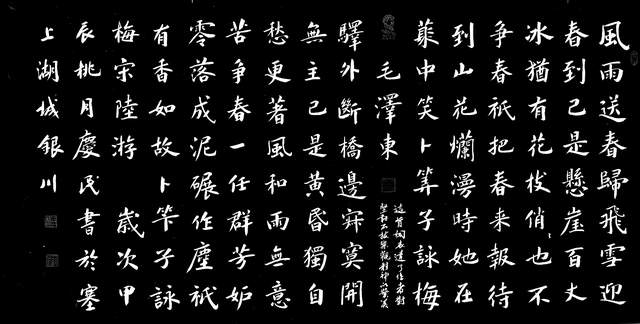 風雨送春歸飛雪迎
春到已是懸崖百丈
冰猶有花枝俏也不
争春祇把春来報待
到山花爛漫時她在
叢中笑卜筭子詠梅
毛澤東
這首詞表達了作者對
驛外斷橋邊寂寞開
無主已是黄昏獨自
愁更著風和雨無意
苦争春一任群芳妒
零落成泥碾作塵祇
有香如故卜筭子詠
梅宋陸游 歲次甲
辰桃月慶民書於塞
上湖城銀川